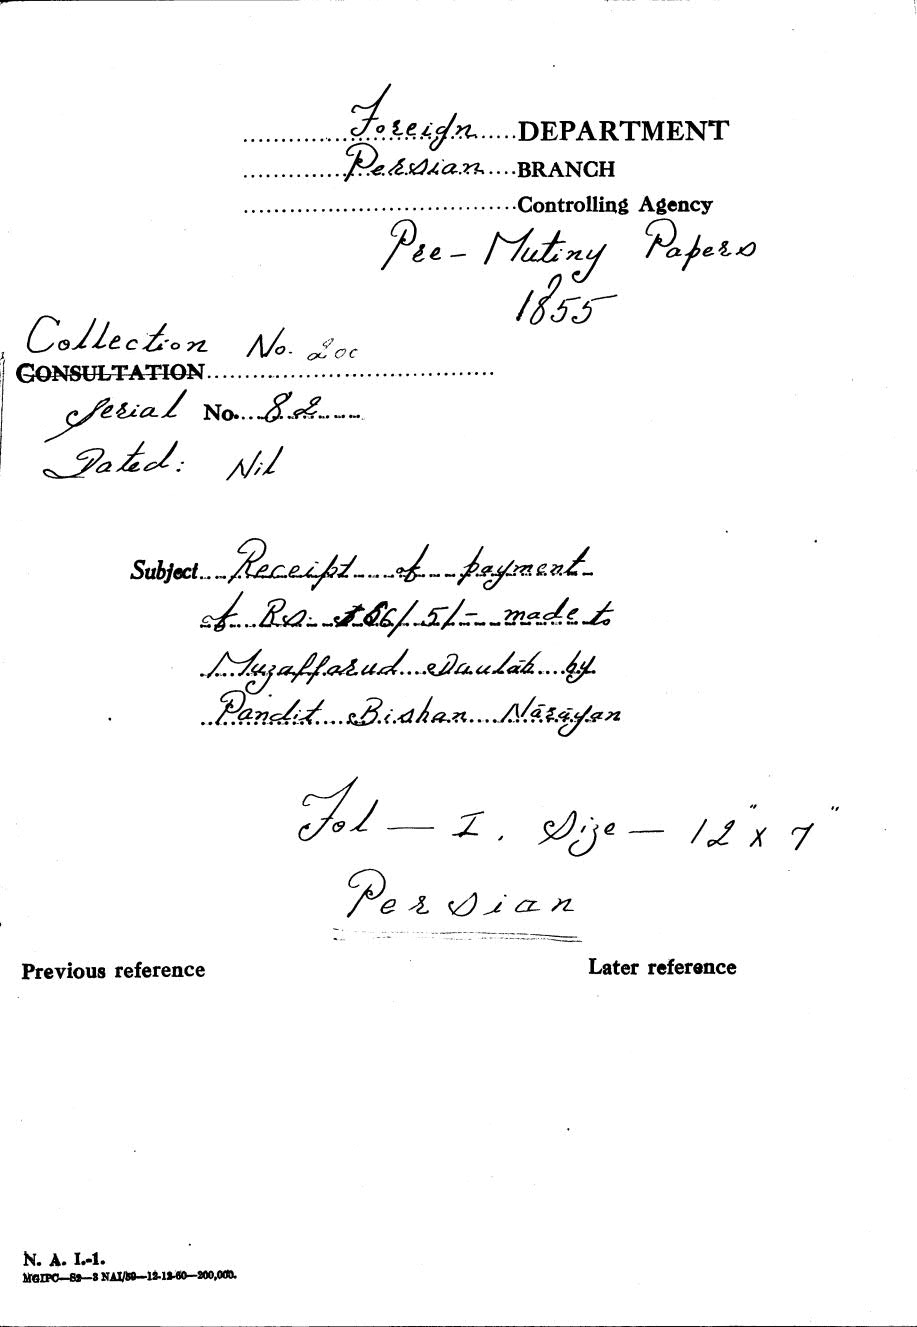 Foreign DEPARTMENT
Persian BRANCH
Controlling Agency
Pre-Mutiny Papers
1855
Collection No. 200
CONSULTATION
Serial No. 82
Dated: Nil
Subject Receipt of payment
of Rs. /5/- made to
Muzaffarud Daulah by
Pandit Bishan Narāyan
Fol — I. Size — 12" x 7"
Persian
Previous reference Later reference
N. A. I.-1.
MGIPC—S2—3 NAI/59—12-12-60—200,000.